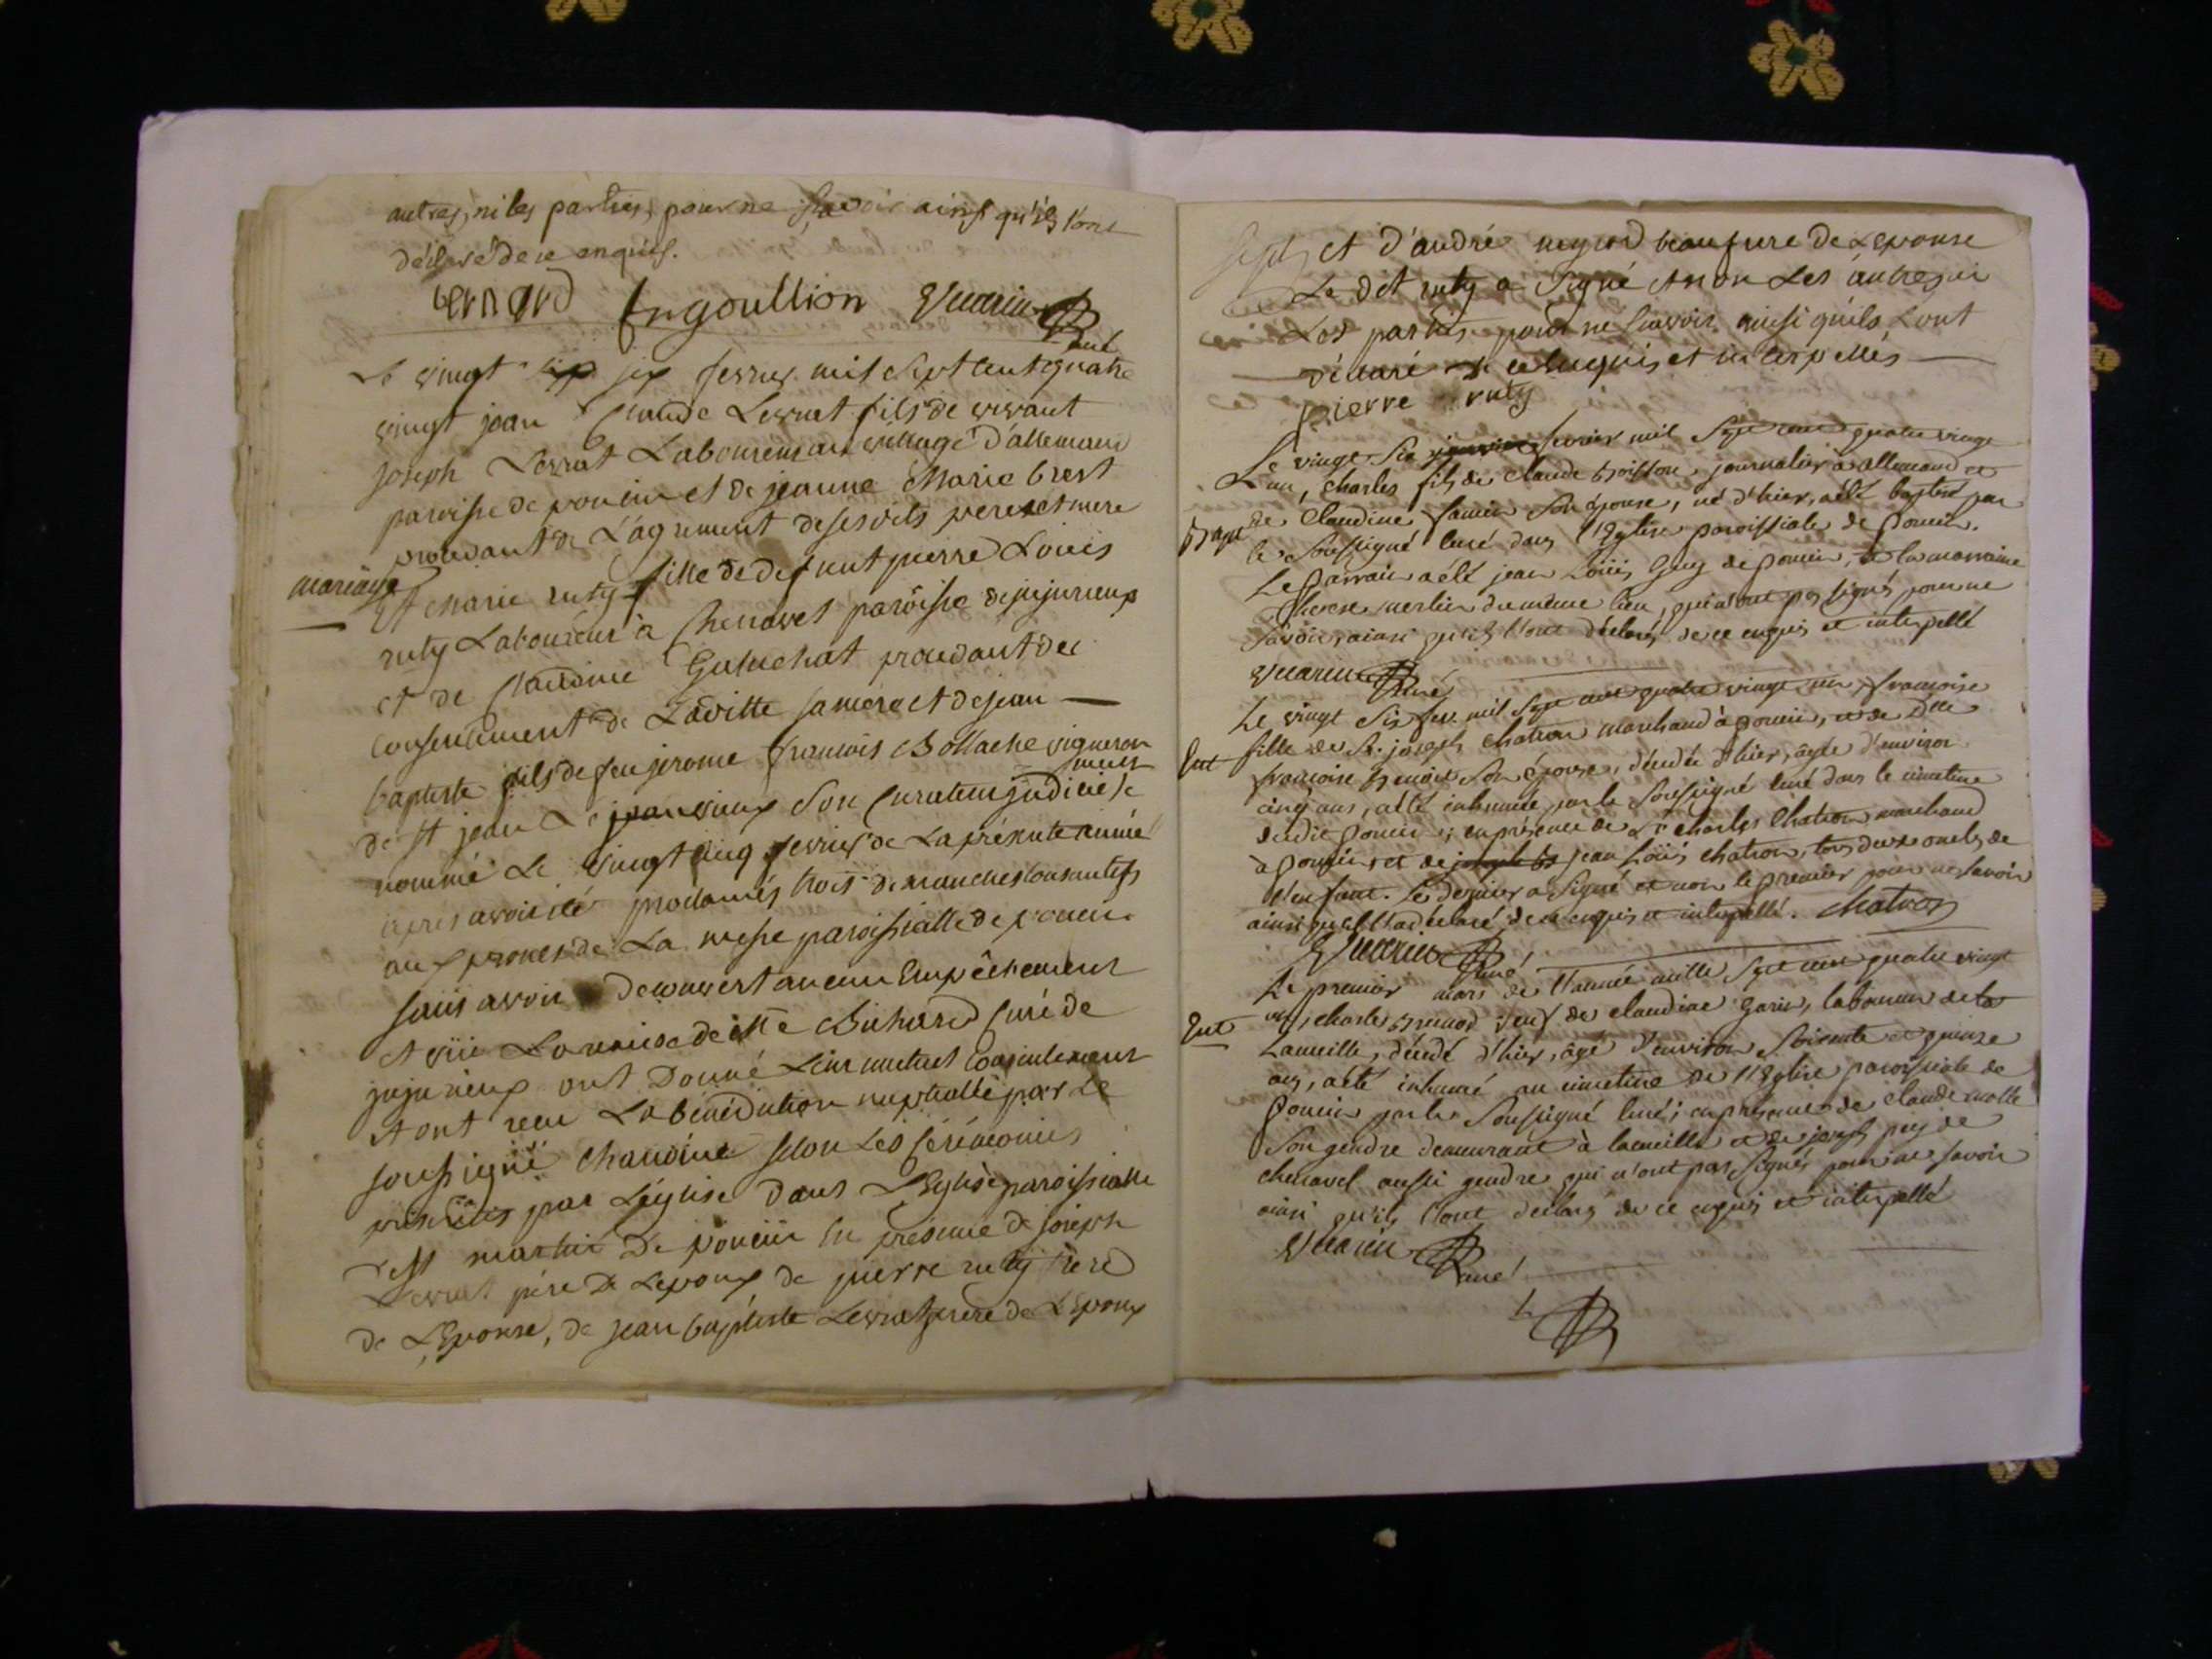 autres, ni les parties, pour ne sçavoir ainsi qu'ils l'ont
déclaré de ce enquis.
bernard fngoullion Guarin
curé
Le vingt six fevrier mil sept cent quatre
vingt jean Claude Levrat fils de vivant
joseph Levrat Laboureur au village d'allemand
paroisse de poncin et de jeanne Marie brest
procedant de L'agrement de ses dits pere et mere
mariage
Et marie ruty fille de defunt pierre Louis
ruty Laboureur à Chenavel paroisse de jujurieux
et de Claudine Guluchat procedant du
consentement de Laditte sa mere et de jean
baptiste fils de feu jerome françois Bollache vigneron
de st jean Le vieux Son Curateur judiciel
nommé Le vingt cinq fevrier de La présente année
après avoir été proclamés trois dimanches consecutifs
aux prones de La messe paroissialle de poncin
sans avoir decouvert aucun Empêchement
et vüe La remise de Mre Bichard Curé de
jujurieux ont Donné Leur mutuel consentement
et ont recu La bénédiction nuptialle par Le
soussigné chanoine selon Les Cérémonies
prescrites par L'église dans L'Eglise paroissialle
de st martin De poncin En présence de joseph
Levrat père De Lepoux de pierre ruty frere
de L'Epouse, de jean baptiste Levrat frere de L'Epoux
et d'andré beaufrere de Lepouse
Le dit ruty a signé et non Les autres ni
Les parties pour ne sçavoir ainsi qu'ils Lont
déclaré de ce enquis et interpellés
pierre ruty
Le vingt six janvier fevrier mil Sept cent quatre vingt
un, Charles fils de Claude Boisson journalier à allemand et
de Claudine famin Son épouse, né d'hier, a été baptisé par
Bapt
le Soussigné Curé dans l'Eglise paroissiale de Poncin.
Le parrain a été jean Loüis Guy de poncin, et la marraine
Therese merlin du même lieu, qui n'ont pas signés pour ne
savoir, ainsi qu'ils l'ont déclaré, de ce enquis et interpellé
Guarin curé
Le vingt six fev. mil Sept cent quatre vingt un, françoise
fille de Sr. joseph Chatron marchand à poncin, et de Dlle
Ent
françoise Son épouse, décedée d'hier, âgée d'environ
cinq ans, a été inhumée par le Soussigné Curé dans le cimetiere
dudit Poncin; en présence de Sr charles Chatron marchand
à poncin, et de joseph jean Loüis chatron, tous deux oncles de
l'enfant. Le dernier a Signé et non le premier pour ne savoir
ainsi qu'il l'a déclaré de ce enquis et interpellé. Chatron
Guarin curé
Le premier mars de l'année mille Sept cent quatre vingt
un, charles Brunod veuf de claudine Garin, laboureur de la
Ent
Lameille, décedé d'hier, âgé d'environ Soixante et quinze
ans, a été inhumé au cimetiere de l'Eglise paroissiale de
Poncin par le Soussigné Curé; en présence de Claude molle
Son gendre demeurant à lameille et de joseph puy de
chenavel aussi gendre qui n'ont pas signés pour ne savoir
ainsi qu'ils l'ont déclaré de ce enquis et interpellé
Guarin
curé